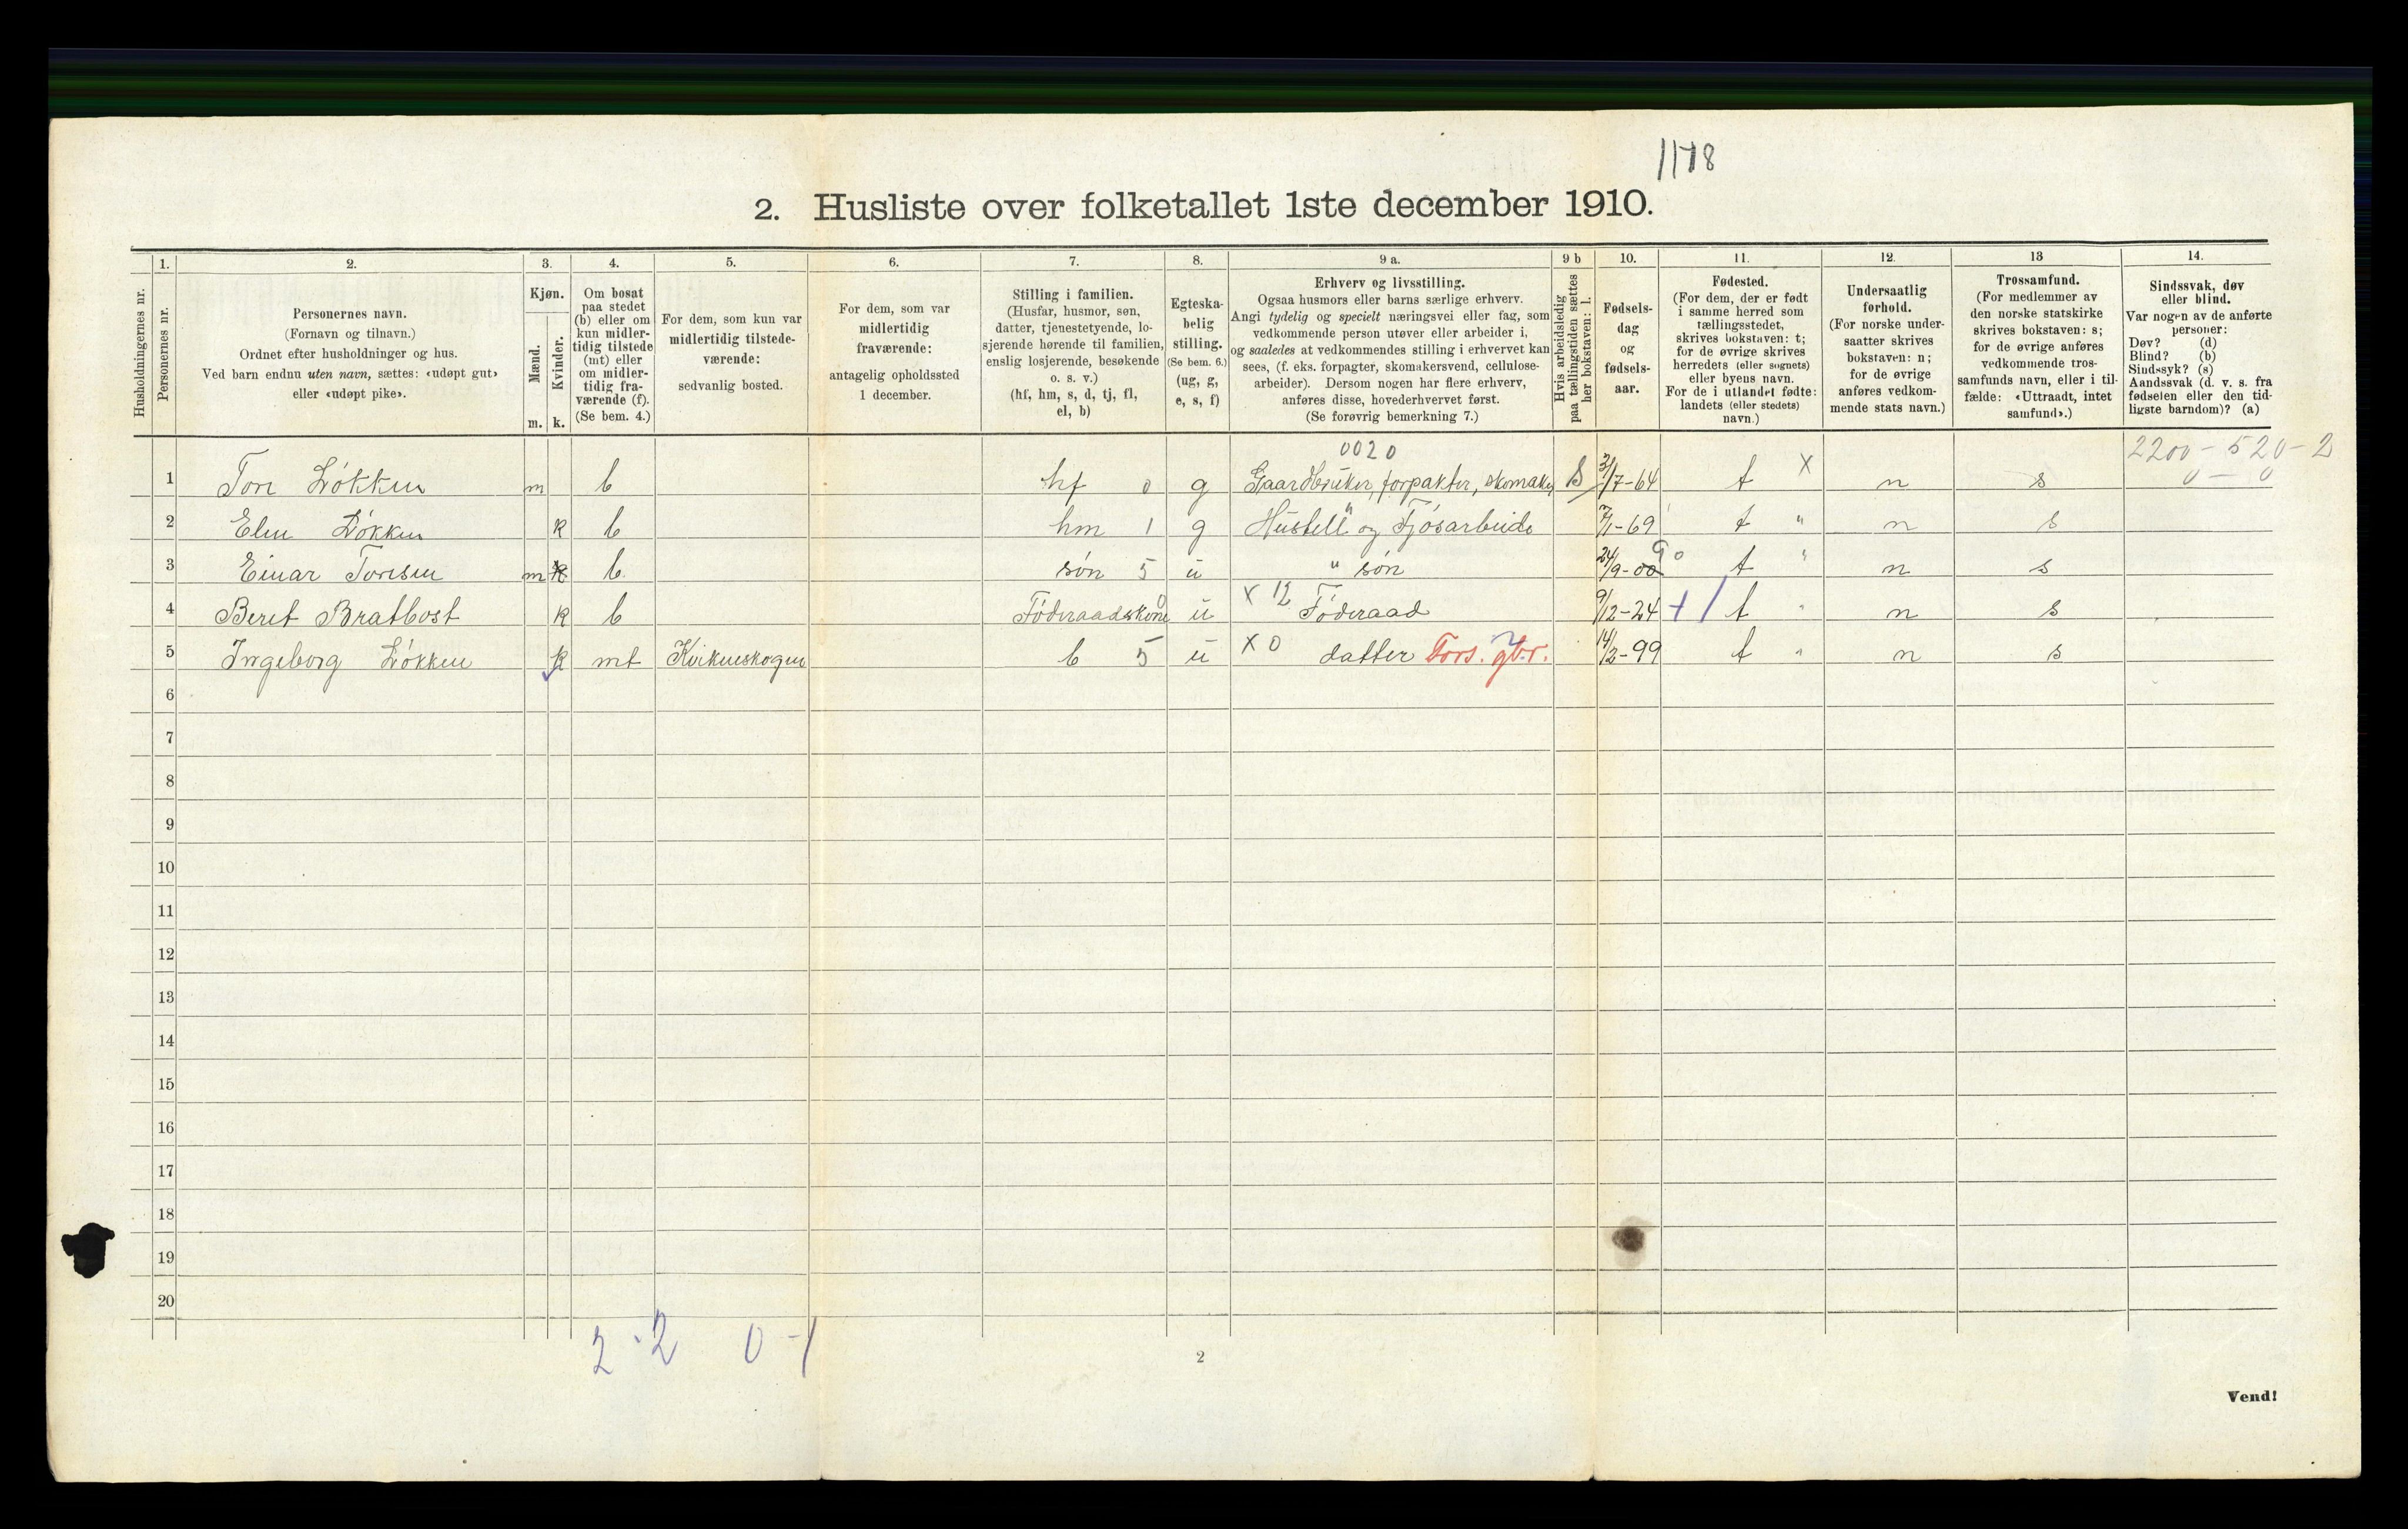 1178
2. Husliste over folketallet 1ste december 1910.
Husholdningernes nr.
1.
Personernes nr.
2.
Personernes navn.
(Fornavn og tilnavn.)
Ordnet efter husholdninger og hus.
Ved barn endnu uten navn, sættes: «udøpt gut»
eller «udøpt pike».
3.
Kjøn.
Mænd.
Kvinder.
m. k.
4.
Om bosat
paa stedet
(b) eller om
kun midler-
tidig tilstede
(mt) eller
om midler-
tidig fra-
værende (f).
(Se bem. 4.)
5.
For dem, som kun var
midlertidig tilstede-
værende:
sedvanlig bosted.
6.
For dem, som var
midlertidig
fraværende:
antagelig opholdssted
1 december.
7.
Stilling i familien.
(Husfar, husmor, søn,
datter, tjenestetyende, lo-
sjerende hørende til familien,
enslig losjerende, besøkende
o. s. v.)
(hf, hm, s, d, tj, fl,
el, b)
8.
Egteska-
belig
stilling.
(Se bem. 6.)
(ug, g,
e, s, f)
9 a.
Erhverv og livsstilling.
Ogsaa husmors eller barns særlige erhverv.
Angi tydelig og specielt næringsvei eller fag, som
vedkommende person utøver eller arbeider i,
og saaledes at vedkommendes stilling i erhvervet kan
sees, (f. eks. forpagter, skomakersvend, cellulose-
arbeider). Dersom nogen har flere erhverv,
anføres disse, hovederhvervet først.
(Se forøvrig bemerkning 7.)
9 b
Hvis arbeidsledig
paa tællingstiden sættes
her bokstaven: l.
10.
Fødsels-
dag
og
fødsels-
aar.
11.
Fødested.
(For dem, der er født
i samme herred som
tællingsstedet,
skrives bokstaven: t;
for de øvrige skrives
herredets (eller sognets)
eller byens navn.
For de i utlandet fødte:
landets (eller stedets)
navn.)
12.
Undersaatlig
forhold.
(For norske under-
saatter skrives
bokstaven: n;
for de øvrige
anføres vedkom-
mende stats navn.)
13
Trossamfund.
(For medlemmer av
den norske statskirke
skrives bokstaven: s;
for de øvrige anføres
vedkommende tros-
samfunds navn, eller i til-
fælde: «Uttraadt, intet
samfund».)
14.
Sindssvak, døv
eller blind.
Var nogen av de anførte
personer:
Døv? (d)
Blind? (b)
Sindssyk? (s)
Aandssvak (d. v. s. fra
fødselen eller den tid-
ligste barndom)? (a)
0020 2200 - 520 - 2
0 - 0
1 Tore Løkken m b hf 0 g Gaardbruker, forpakter, skomaker S 31/7-64 t X n s
2 Elen Løkken k b hm 1 g Hustell og Fjøsarbeide 7/1-69 t " n s
3 Einar Toresen m k b søn 5 u " søn 24/9-00 90 t " n s
4 Beret Bratbost k b Føderaadskone 0 u X 12 Føderaad 9/12-24 + / t " n s
5 Ingeborg Løkken k mt Kvikneskogen b 5 u X 0 datter Fors. gbr. 14/2-99 t " n s
6
7
8
9
10
11
12
13
14
15
16
17
18
19
20
2 - 2 0 - 1
2
Vend!